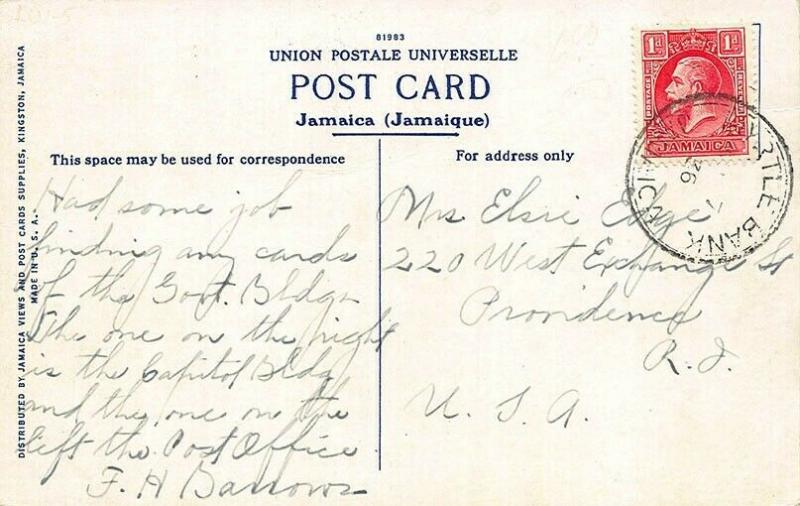 81983
UNION POSTALE UNIVERSELLE
POST CARD
Jamaica (Jamaique)
This space may be used for correspondence
For address only
DISTRIBUTED BY JAMAICA VIEWS AND POST CARDS SUPPLIES, KINGSTON, JAMAICA
MADE IN U. S. A.
Had some job
finding any cards
of the Govt. Bldgs
The one on the right
is the Capitol Bldg
and the one on the
left the Post Office
F. H Barrows
Mrs Elsie Edge
220 West Exchange St
Providence
R. I.
U. S. A.
1d 1d
POSTAGE
JAMAICA
RTLE BANK
36